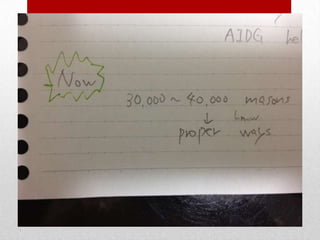 AIDG hel
Now
30,000 ~ 40,000 masons
↓ know
proper ways